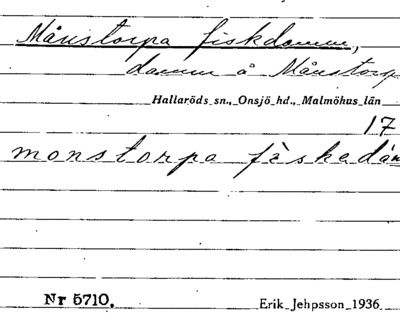 Månstorpa fiskdamm,
damm å Månstorp
Hallaröds sn., Onsjö hd., Malmöhus län
17
monstorpa fèskedàm
Nr 5710.
Erik Jehpsson 1936